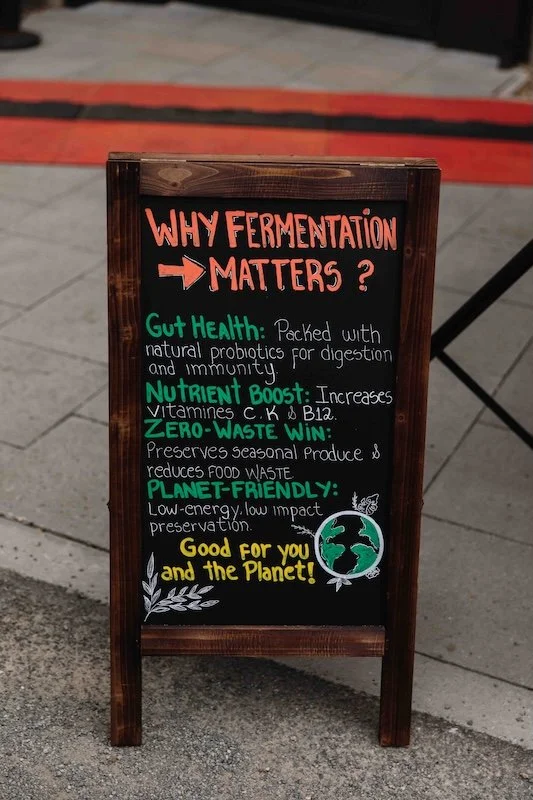 WHY FERMENTATION
MATTERS ?
GUT HEALTH: Packed with
natural probiotics for digestion
and immunity.
NUTRIENT BOOST: Increases
Vitamines C, K & B12.
ZERO-WASTE WIN:
Preserves seasonal produce &
reduces FOOD WASTE
PLANET-FRIENDLY:
Low-energy, low impact
preservation.
Good for you
and the Planet!